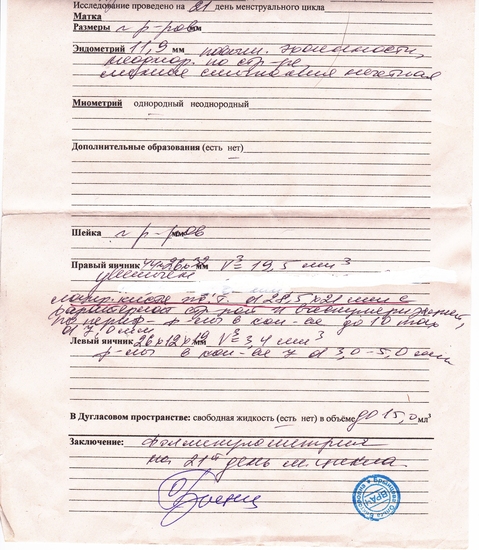 Исследование проведено на 21 день менструального цикла
Матка
Размеры N р-ров мм
Эндометрий 11,9 мм повыш. эхогенности,
неоднор. по стр-ре,
смыкания нечеткая
Миометрий однородный неоднородный
Дополнительные образования (есть нет)
Шейка N р-ров мм
Правый яичник 44х26х мм V= 19,5 мм3
увеличен
d 28,5х21 мм с
по периф. р-лы в кол-ве до 10 max
d 7,0 мм
Левый яичник 26х12х19 мм V= 3,4 мм3
р-лы в кол-ве 7 d 3,0-5,0 мм
В Дугласовом пространстве: свободная жидкость (есть нет) в объёме до 15,0 мл3
Заключение: Фолликулометрия
на 21й день м. цикла.
ВРАЧ